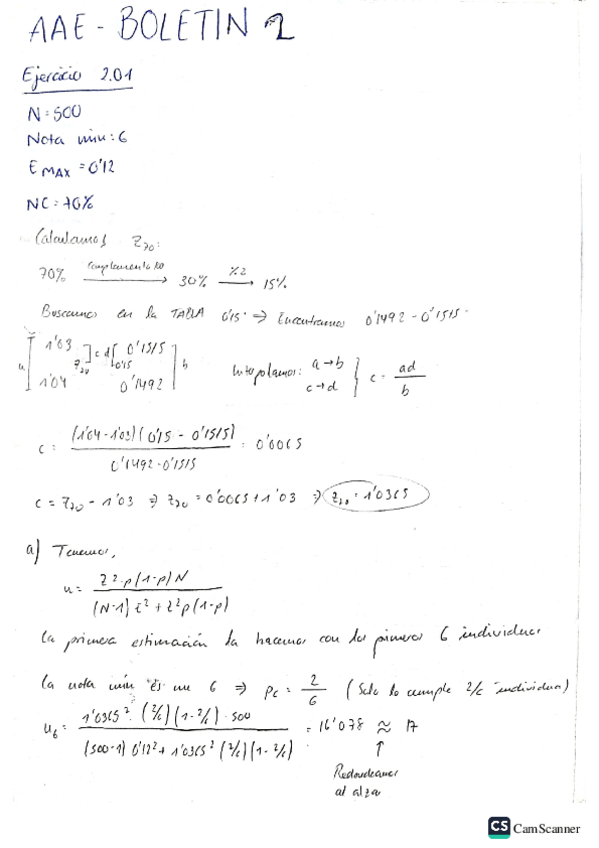 AAE - BOLETIN 2
Ejercicio 2.01
N=500
Nota min: 6
E MAX = 0'12
NC = 70%
Calculamos Z70:
70% complementario → 30% %2 → 15%
Buscamos en la TABLA 0'15 ⇒ Encontramos 0'1492 - 0'1515
a [ 1'03 Z70 ] c d [ 0'1515 0'15 ] b
1'04 0'1492
Interpolamos: a→b c→d } c = ad / b
c = (1'04-1'03)(0'15 - 0'1515) / 0'1492-0'1515 = 0'0065
c = Z70 - 1'03 ⇒ Z70 = 0'0065 + 1'03 ⇒ Z70 = 1'0365
a) Tenemos,
n = Z²·p(1-p)N / (N-1)E²+Z²p(1-p)
La primera estimación la hacemos con los primeros 6 individuos
La nota min es un 6 ⇒ p6 = 2/6 (Solo lo cumple 2/6 individuos)
n6 = 1'0365² · (2/6)(1-2/6) · 500 / (500-1) 0'12² + 1'0365² (2/6)(1-2/6) = 16'078 ≈ 17
↑
Redondeamos
al alza
CS CamScanner